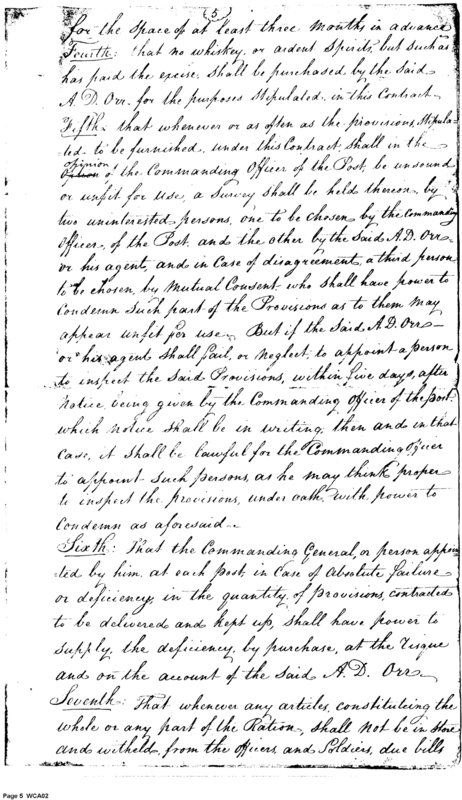 (5)
for the space of at least three months in advance
Fourth: that no whiskey, or ardent spirits, but such as
has paid the excise, shall be purchased by the said
A. D. Orr. for the purposes stipulated, in this Contract.
Fifth: that whenever or as often as the provisions, stipula-
-ted to be furnished under this Contract shall in the
opinion
of the Commanding Officer of the Post, be unsound
or unfit for use, a survey shall be held thereon by
two uninterested persons, one to be chosen by the Commanding
Officer, of the Post, and the other by the said A. D. Orr
or his agent, and in Case of disagreement, a third person
to be chosen, by Mutual Consent who shall have power to
Condemn such part of the Provisions as to them may
appear unfit for use. But if the said A. D. Orr-
or his agent shall fail, or neglect to appoint a person
to inspect the said Provisions, within five days, after
Notice being given by the Commanding Officer of the post
which notice shall be in writing, then and in that
Case, it shall be lawful for the Commanding Officer
to appoint such persons, as he may think proper
to inspect the provisions, under oath, with power to
Condemn as aforesaid-
Sixth: That the Commanding General, or person appoin
-ted by him, at each post, in Case of absolute failure
or deficiency, in the quantity of Provisions, contracted
to be delivered and kept up, shall have power to
supply, the deficiency by purchase, at the risque
and on the account of the said A. D. Orr-
Seventh: That whenever any articles, constituting the
whole or any part of the Ration, shall not be in store
and witheld, from the officers, and Soldiers, due bills
Page 5 WCA02